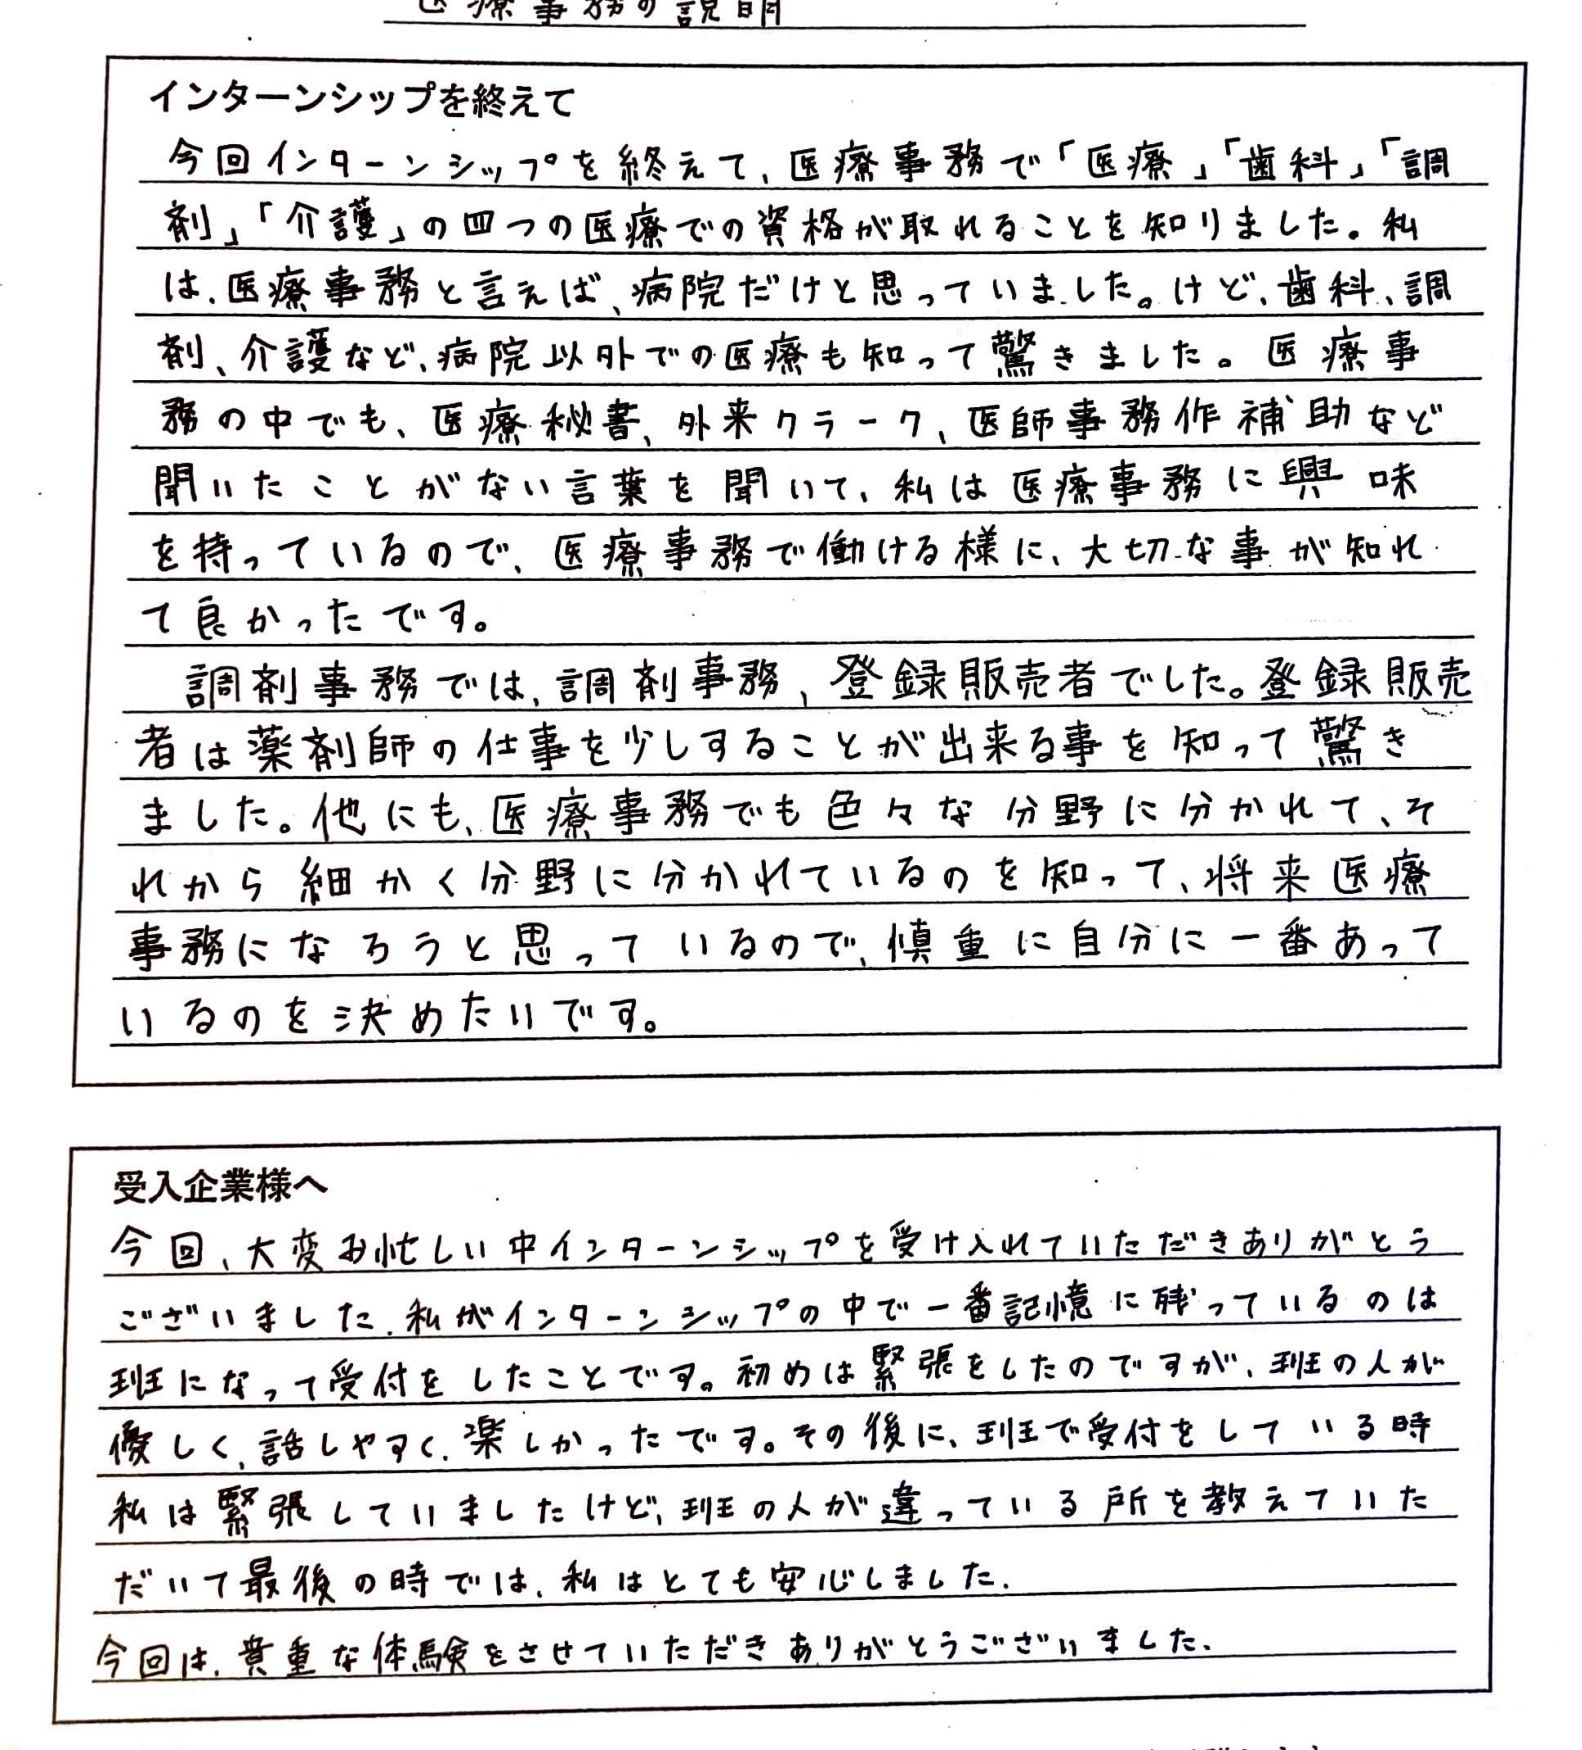 医療事務の説明
インターンシップを終えて
今回インターンシップを終えて、医療事務で「医療」「歯科」「調
剤」「介護」の四つの医療での資格が取れることを知りました。私
は、医療事務と言えば、病院だけと思っていました。けど、歯科、調
剤、介護など、病院以外での医療も知って驚きました。医療事
務の中でも、医療秘書、外来クラーク、医師事務作補助など
聞いたことがない言葉を聞いて、私は医療事務に興味
を持っているので、医療事務で働ける様に、大切な事が知れ
て良かったです。
調剤事務では、調剤事務、登録販売者でした。登録販売
者は薬剤師の仕事を少しすることが出来る事を知って驚き
ました。他にも、医療事務でも色々な分野に分かれて、そ
れから細かく分野に分かれているのを知って、将来医療
事務になろうと思っているので、慎重に自分に一番あって
いるのを決めたいです。
受入企業様へ
今回、大変お忙しい中インターンシップを受け入れていただきありがとう
ございました。私がインターンシップの中で一番記憶に残っているのは
班になって受付をしたことです。初めは緊張をしたのですが、班の人が
優しく、話しやすく、楽しかったです。その後に、班で受付をしている時
私は緊張していましたけど、班の人が違っている所を教えていた
だいて最後の時では、私はとても安心しました。
今回は、貴重な体験をさせていただきありがとうございました。